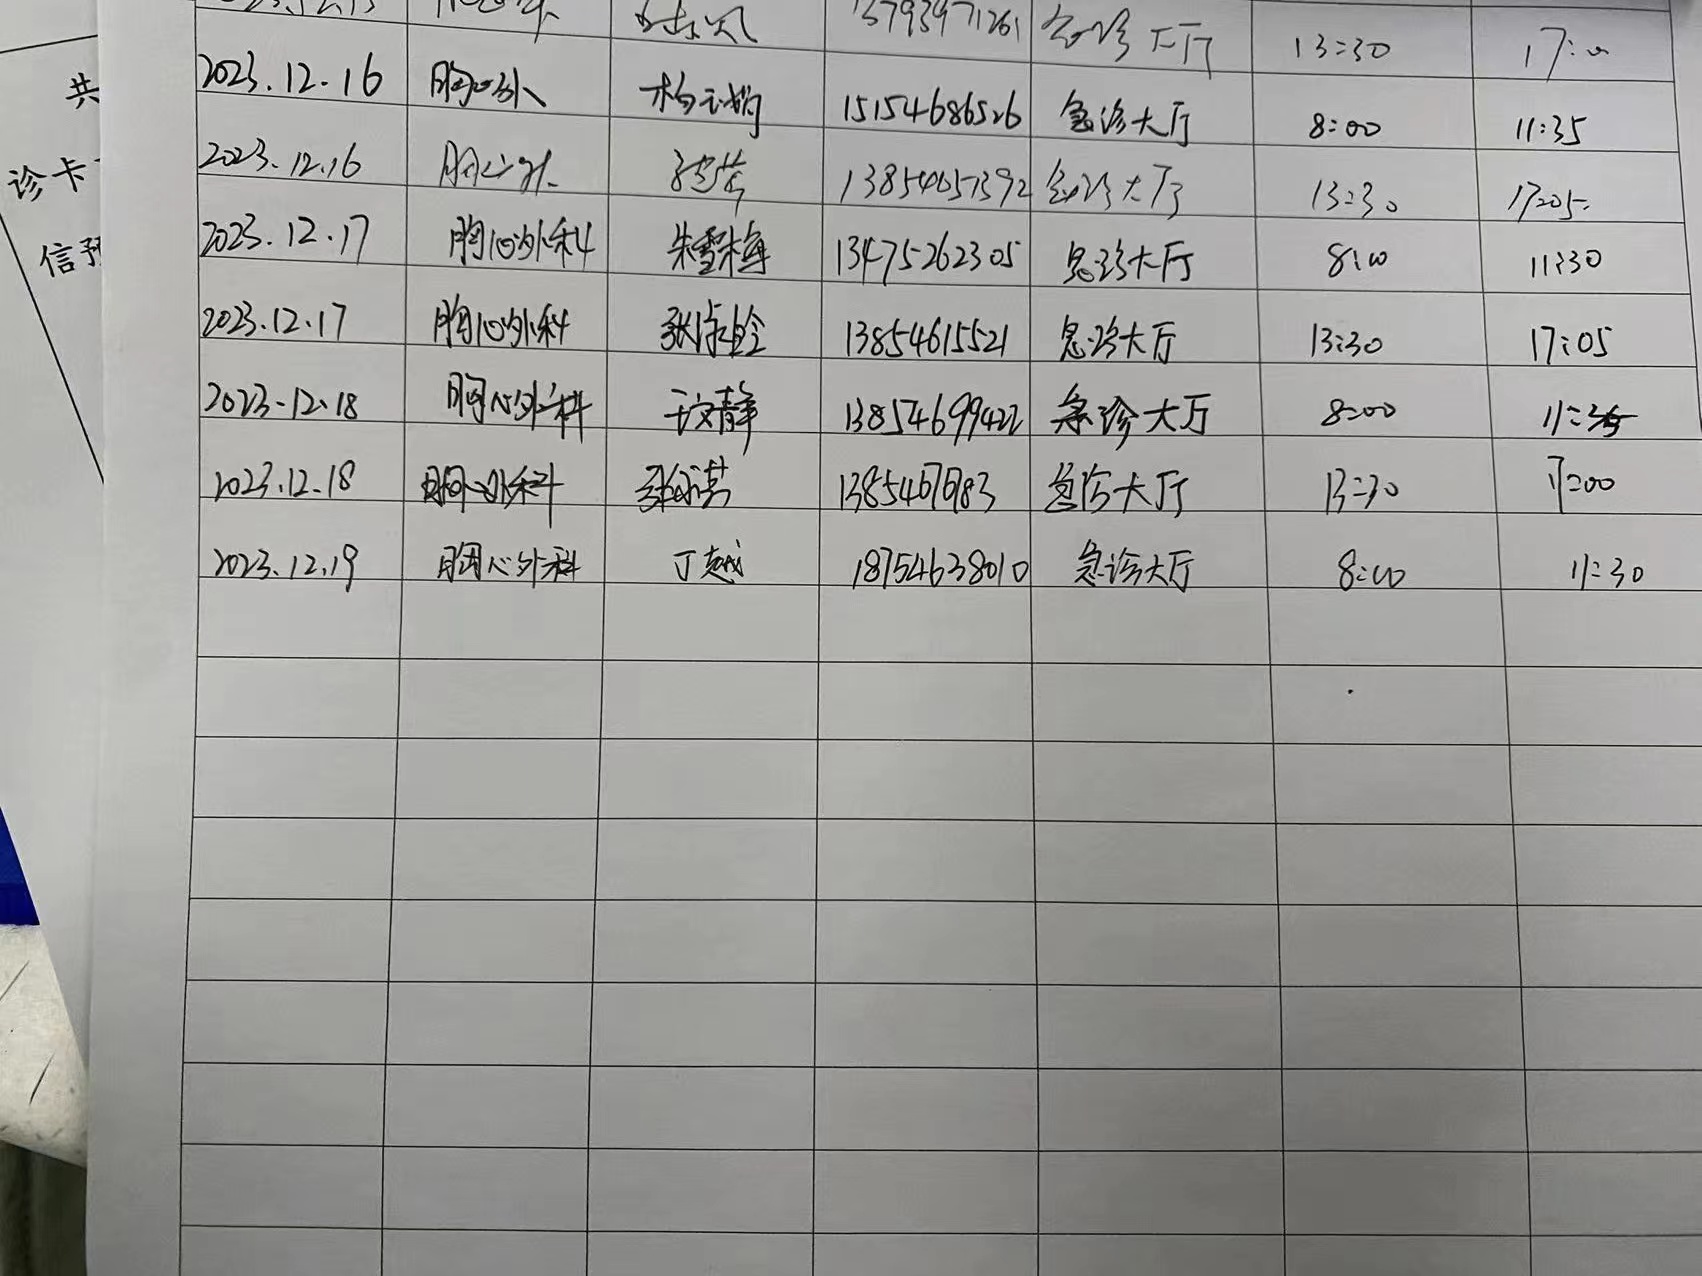 13793971261 急诊大厅 13:30 17:00
2023.12.16 胸心外 15154686526 急诊大厅 8:00 11:35
共
2023.12.16 胸心外 13854651392 急诊大厅 13:30 17:05
诊卡
2023.12.17 胸心外科 朱雪梅 13475262305 急诊大厅 8:00 11:30
信预
2023.12.17 胸心外科 13854615521 急诊大厅 13:30 17:05
2023.12.18 胸心外科 于文静 13854699422 急诊大厅 8:00
2023.12.18 胸心外科 急诊大厅 13:30 17:00
2023.12.19 胸心外科 丁越 18754638010 急诊大厅 8:00 11:30